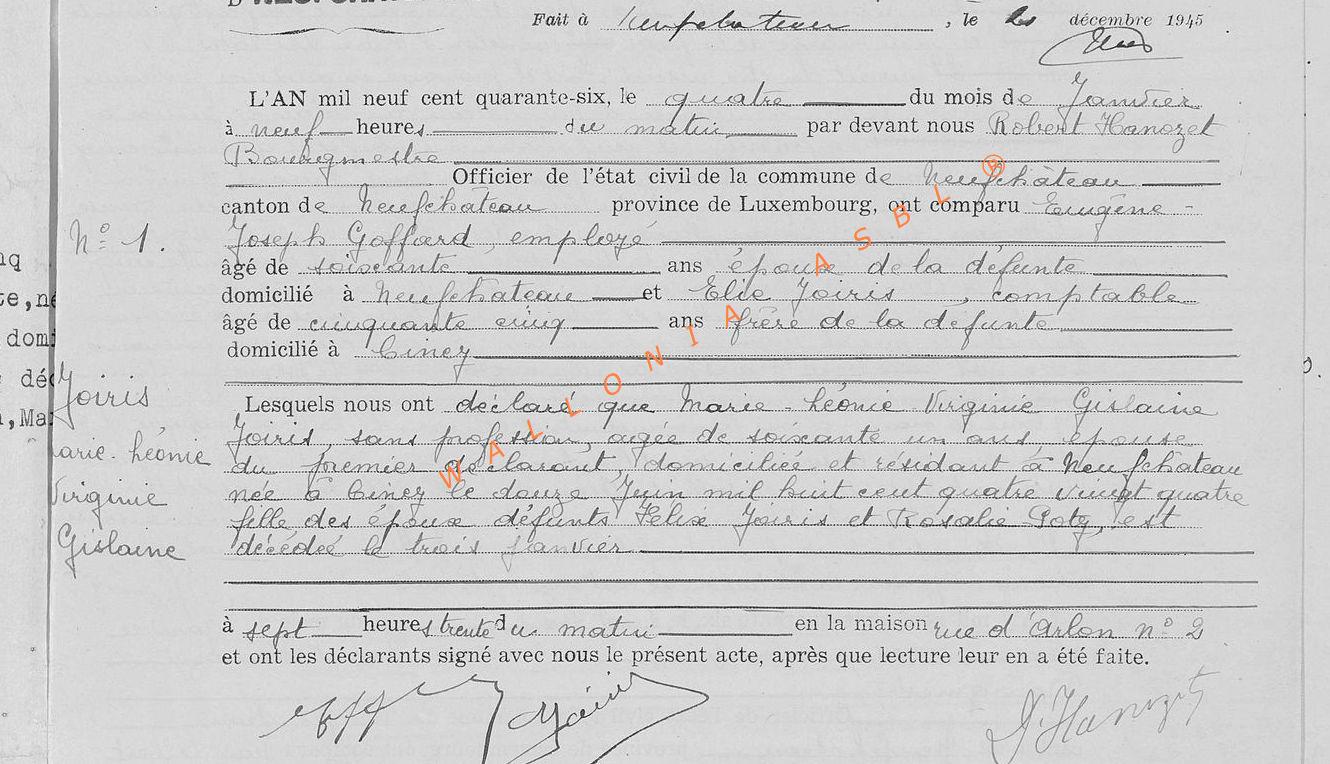 Fait à Neufchateau, le décembre 1945
L'AN mil neuf cent quarante-six, le quatre du mois de Janvier
à neuf heures du matin par devant nous Robert Hanozet
Bourgmestre
Officier de l'état civil de la commune de Neufchâteau
canton de Neufchâteau province de Luxembourg, ont comparu Eugène -
N° 1.
Joseph Goffard, employé
âgé de soixante ans époux de la défunte
domicilié à Neufchateau et Elie Joiris, comptable
âgé de cinquante cinq ans frère de la défunte
domicilié à Ciney
Joiris
arie-Léonie
Virginie
Gislaine
Lesquels nous ont déclaré que Marie-Léonie Virginie Gislaine
Joiris, sans profession, agée de soixante un ans, épouse
du premier déclarant, domiciliée et résidant à Neufchateau
née à Ciney le douze Juin mil huit cent quatre vingt quatre
fille des époux défunts Félix Joiris et Rosalie Goty, est
décédée le trois janvier
à sept heures trente du matin en la maison rue d'Arlon n° 2
et ont les déclarants signé avec nous le présent acte, après que lecture leur en a été faite.
Joiris
R. Hanozet
WALLONIA ASBL ®